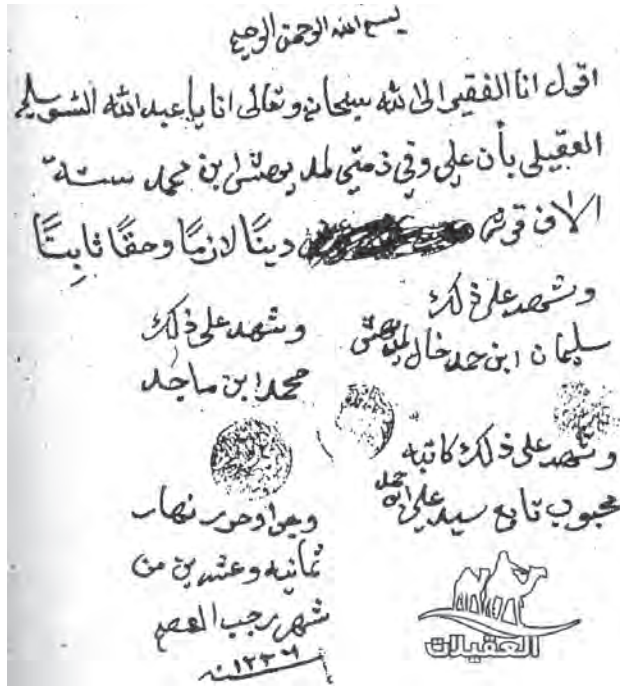 بسم الله الرحمن الرحيم
اقول انا الفقير الى لله سبحانه وتعالى انا يا عبد الله الشويلي
العقيلي بأن علي وفي ذمتي ابن محمد ستة
الاف قرش دينًا لازمًا وحقًا ثابتًا
وشهد على ذلك
سليمان ابن حمد خال
وشهد على ذلك
محمد ابن ماجد
وشهد على ذلك كاتبه
محبوب تابع سيد علي ابن حمد
نهار
ثمانيه وعشرين من
شهر رجب
سنة ١٣٣٦
العقيلات